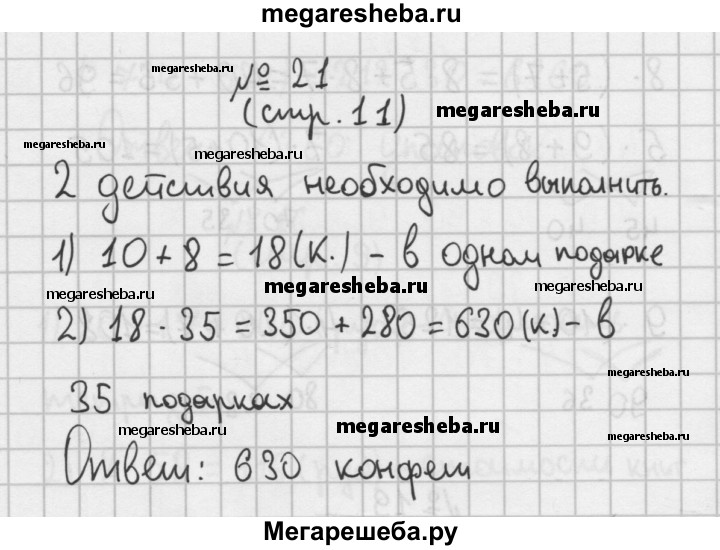 megaresheba.ru
megaresheba.ru
№ 21
(стр. 11)
megaresheba.ru
megaresheba.ru
megaresheba.ru
2 действия необходимо выполнить.
1) 10 + 8 = 18 (к.) - в одном подарке
megaresheba.ru
megaresheba.ru
megaresheba.ru
2) 18 · 35 = 350 + 280 = 630 (к) - в
megaresheba.ru
35 подарках
megaresheba.ru
megaresheba.ru
megaresheba.ru
Ответ: 630 конфет
Мегарешеба.ру